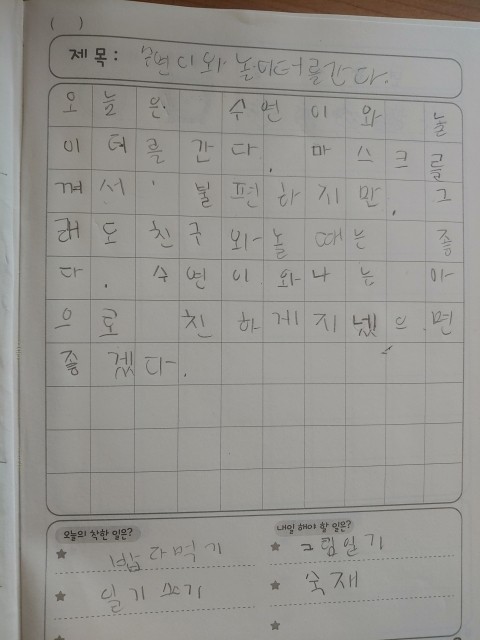 ( )
제 목 : 수변이와 놀이터를간다.
오늘은 수변이와 놀
이터를간다. 마스크를
껴서 불편하지만. 그
래도친구와놀때는 좋
다. 수연이와나는 아
으로 친하게지넸으.면
좋겠다.
오늘의 착한 일은? 내일 해야 할 일?
★ 밥다먹기 ★ 그림일기
★ 일기쓰기 ★ 숙재
★ ★